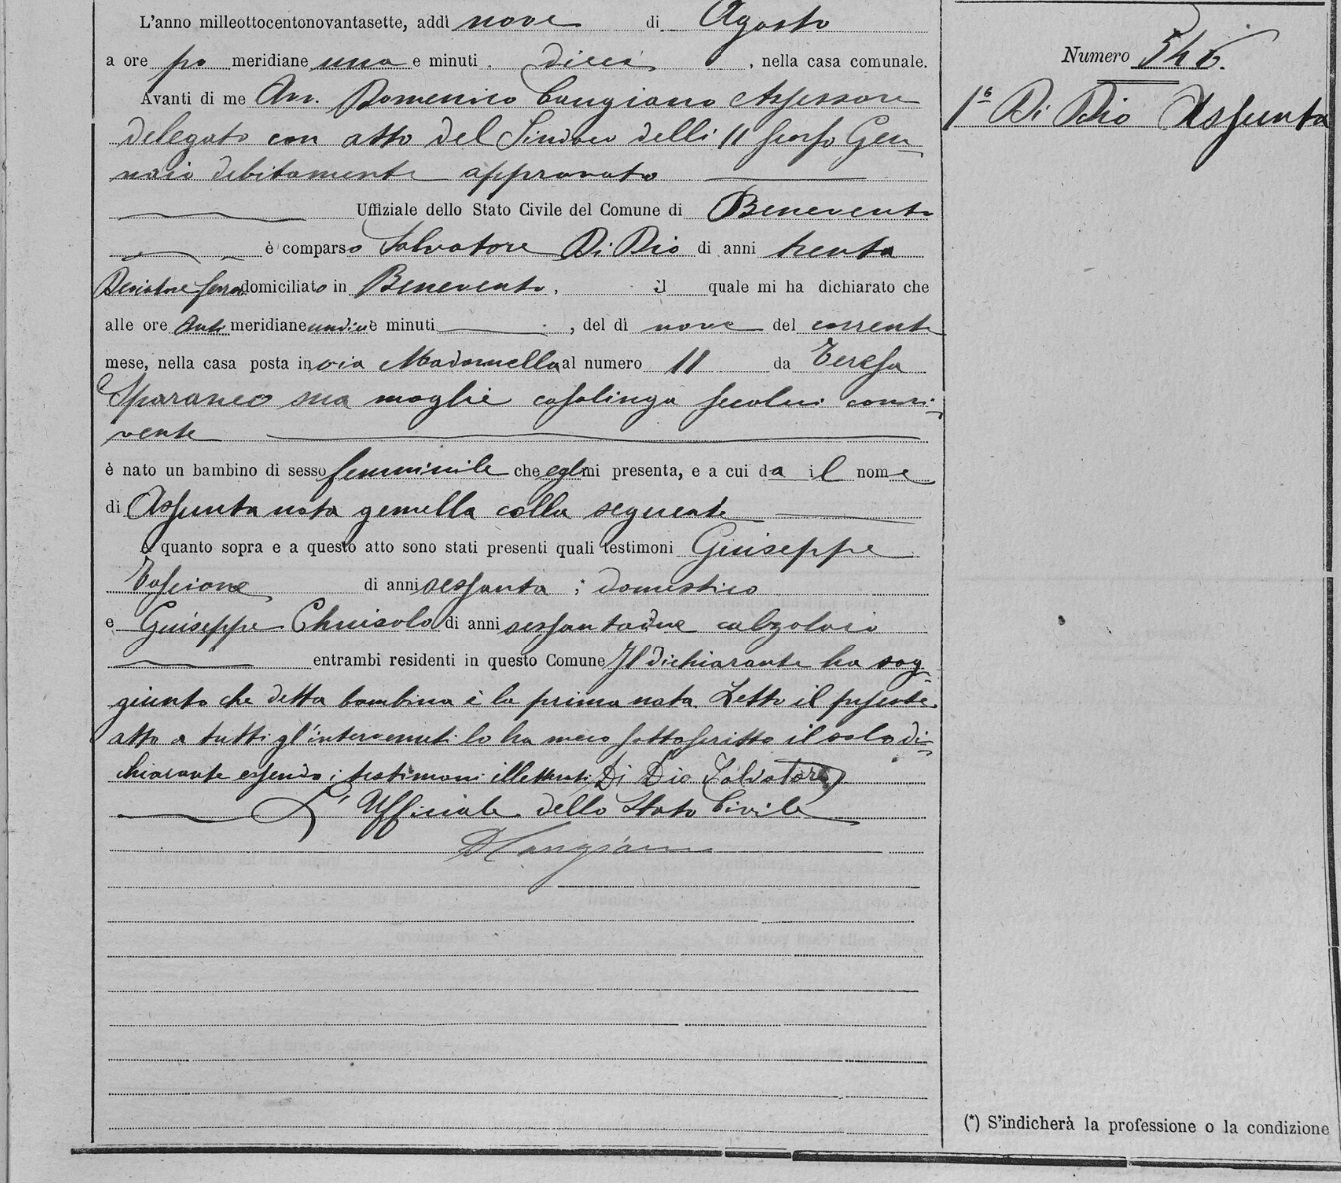 L'anno milleottocentonovantasette, addì nove di Agosto
a ore po meridiane una e minuti dieci, nella casa comunale.
Avanti di me Avv. Domenico Cangiano Assessore
delegato con atto del Sindaco delli 11 scorso Gen-
naio debitamente approvato
Uffiziale dello Stato Civile del Comune di Benevento
è comparso Salvatore Di Dio di anni trenta
domiciliato in Benevento, il quale mi ha dichiarato che
alle ore anti meridiane undici e minuti, del dì nove del corrente
mese, nella casa posta in via Madonnella al numero 11 da Teresa
Sparaneo sua moglie casalinga seco lui convi-
vente
è nato un bambino di sesso femminile che egli mi presenta, e a cui da il nome
di Assunta nata gemella colla seguente
A quanto sopra e a questo atto sono stati presenti quali testimoni Giuseppe
di anni sessanta; domestico
e Giuseppe Chiusolo di anni sessantadue calzolaio
entrambi residenti in questo Comune Il dichiarante ha sog-
giunto che detta bambina è la prima nata. Letto il presente
atto a tutti gl'intervenuti lo ha meco sottoscritto il solo di-
chiarante essendo i testimoni illetterati Di Dio Salvatore
L'Ufficiale dello Stato Civile
DCangiano
Numero 546.
1ª Di Dio Assunta
(*) S'indicherà la professione o la condizione